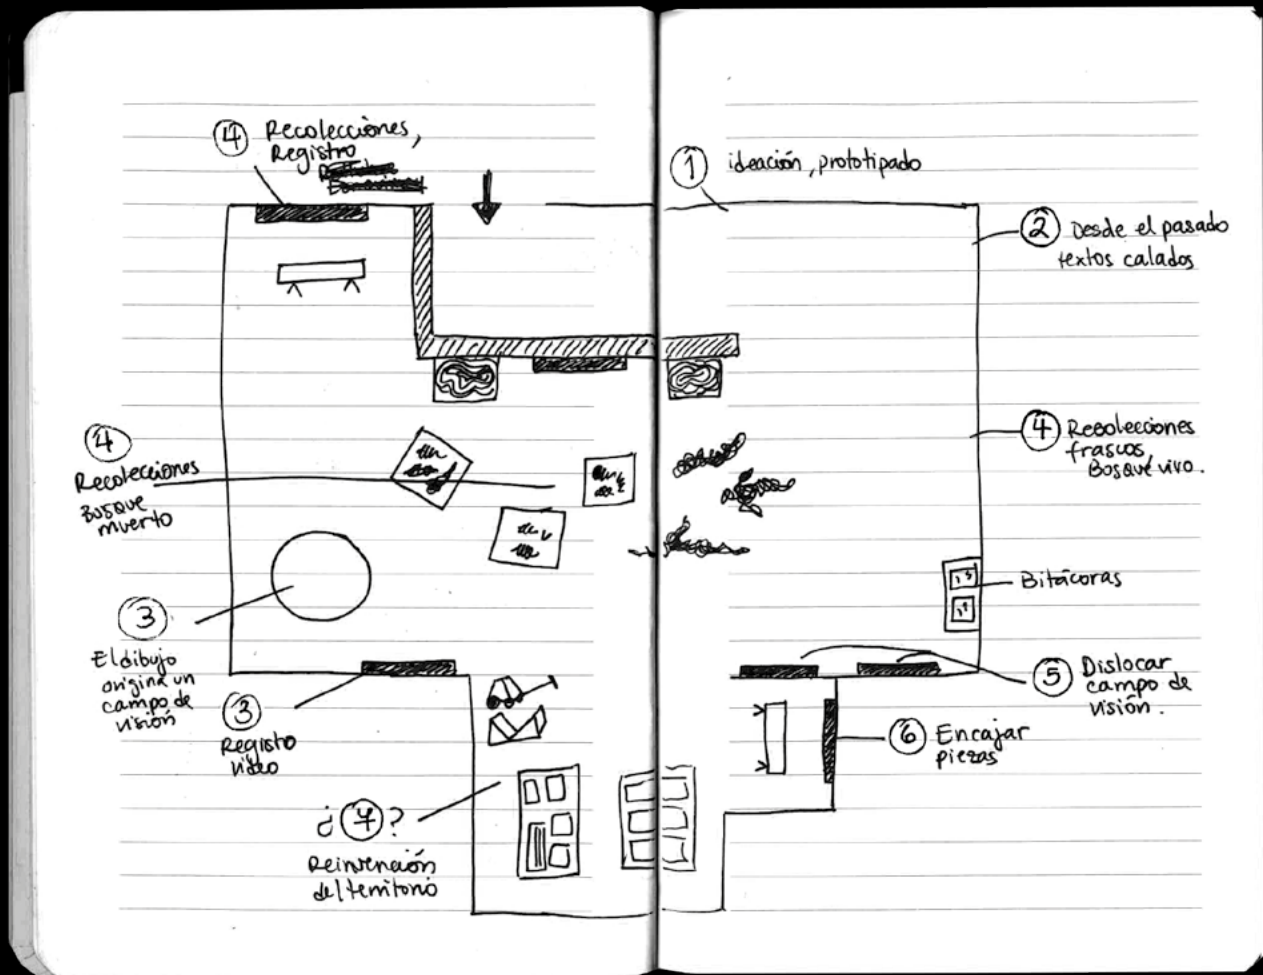 4 Recolecciones,
Registro
1 ideación, prototipado
2 Desde el pasado
textos calados
4 Recolecciones
Bosque
muerto
4 Recolecciones
frascos
Bosque vivo.
Bitácoras
3
El dibujo
origina un
campo de
visión
3
Registo
video
5 Dislocar
campo de
visión.
6 Encajar
piezas
¿7?
Reinvención
del territorio